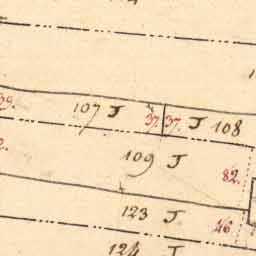 107 J 37. 37. J 108
109 J
82.
123 J
26
124 J